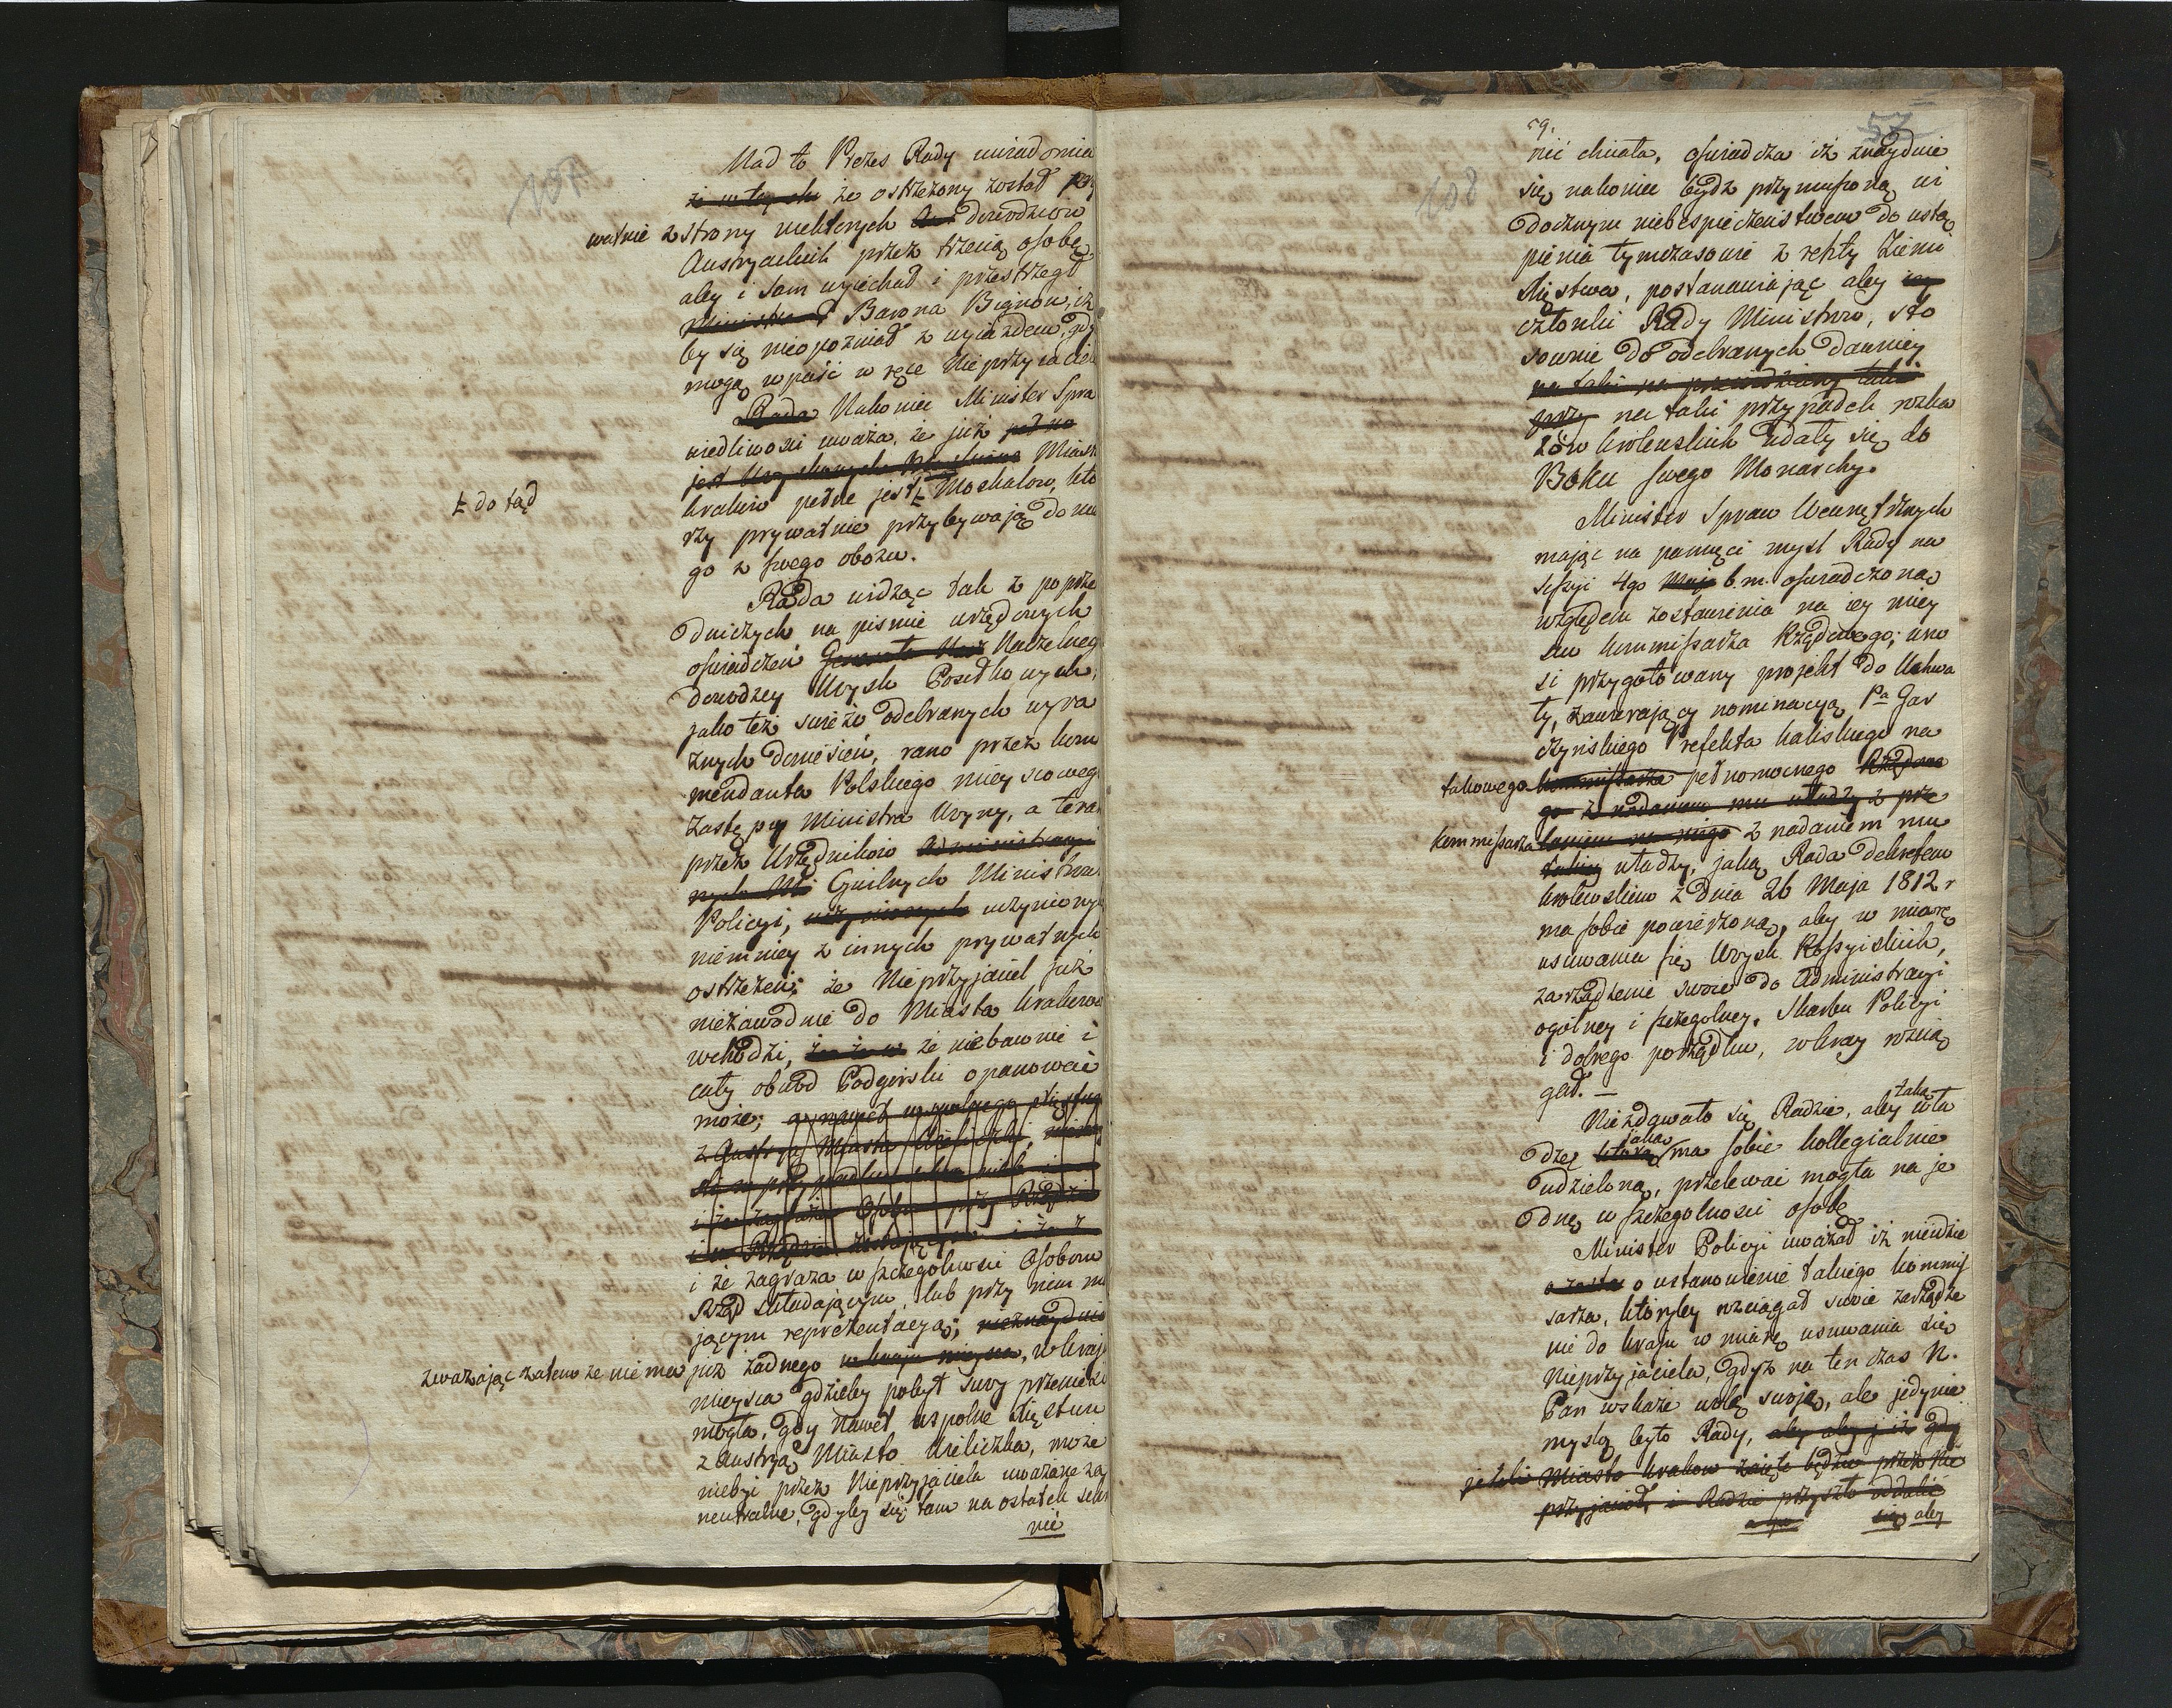 107
Nad to Prezes Rady uwiadomia
że ostrzeżony został pry
watnie z strony niektorych dowodzców
Austryackich przez trzecią osobę,
aby i sam wyiechał i przestrzegł
Barona Bignon, iż
by się nieopozniał z wyiazdem, gdy
mogą wpaść w ręce Nieprzyiaciela
Rada Nakoniec Minister Spra
wiedliwosci uważa, że już
Miasto
Krakow pełne jest Moskalow, kto
Ł do tąd
rzy prywatnie przybywają do nie
go z swego obozu.
Rada widząc tak z poprze
dniczych na pismie urzędowych
oswiadczeń Generała Naczelnego
dowodzcy Woysk Posiłkowych;
jako też swieżo odebranych wyra
znych doniesień, rano przez kom
mendanta Polskiego mieyscowego
Zastępcy Ministra Woyny, a teraz
przez Urzędnikow
Cywilnych Ministra
Policyi, uczynionych
niemniey z innych prywatnych
ostrzeżeń; że Nieprzyjaciel już
niezawodnie do Miasta Krakowa
wchodzi, że niebawnie i
cały obwod Podgorski opanować
może; a nawet wspolnego
z Austryą Miasta Wieliczki,
i że zagraża w szczegolnosci Osobom
Rząd składającym, lub przy nim ma
jącym reprezentacyą;
zważając zatem że nie ma już żadnego w kraju
mieysca gdzieby pobyt swoy przenieść
mogła, gdy nawet wspolne
z Austryą Miasto Wieliczka, może
niebyć przez Nieprzyjaciela uważane za
neutralne, gdyby się tam na ostatek schro
nić
59.
57
108
nić chciała, oswiadcza iż znayduie
się nakoniec bydz przymuszoną wi
docznym niebespieczenstwem do ustą
pienia tymczasowie z reszty Xiemi
Xięstwa, postanawiając aby
członki Rady Ministrow, sto
sownie do odebranych dawniey
na taki przypadek rozka
zów krolewskich udały się do
Boku swego Monarchy.
Minister Spraw Wewnętrznych
mając na pamięci mysl Rady na
sessyi 4go Maja b.m. oswiadczoną
względem zostawienia na iey miey
scu kommissarza Rządowego; wno
si przygotowany projekt do Uchwa
ły, zawierający nominacyą Pa Gar
czynskiego Prefekta kaliskiego na
takowego kommissarza pełnomocnego Rządowe
go z nadaniem mu władzy z prze
kommissarza z nadaniem mu
takiey władzy, jaką Rada dekretem
krolewskim z dnia 26 Maja 1812 r
ma sobie powierzoną, aby w miarę
usuwania się Woysk Rossyiskich,
zarządzenie swoie do Administracyi
ogólney i szczegolney, Skarbu Policyi
i dobrego porządku, w kray rozcią
gał. —
Niezdawało się Radzie, aby taką wła
dzę którą jaką ma sobie kollegialnie
udzieloną, przelewać mogła na je
dnę w szczegolnosci osobę
Minister Policyi uważał iż nieidzie
o ustanowienie takiego kommis
sarza, któryby rozciągał swoie zarządze
nie do kraju w miarę usuwania się
Nieprzyjaciela, gdyż na ten czas N.
Pan wskaże wolę swoją, ale jedynie
myslą było Rady, aby aby j iż gdy
jeżeli Miasto Krakow zaięte będzie przez Nie
przyjaciół, i Radzie przyszło oddalić
się, aby